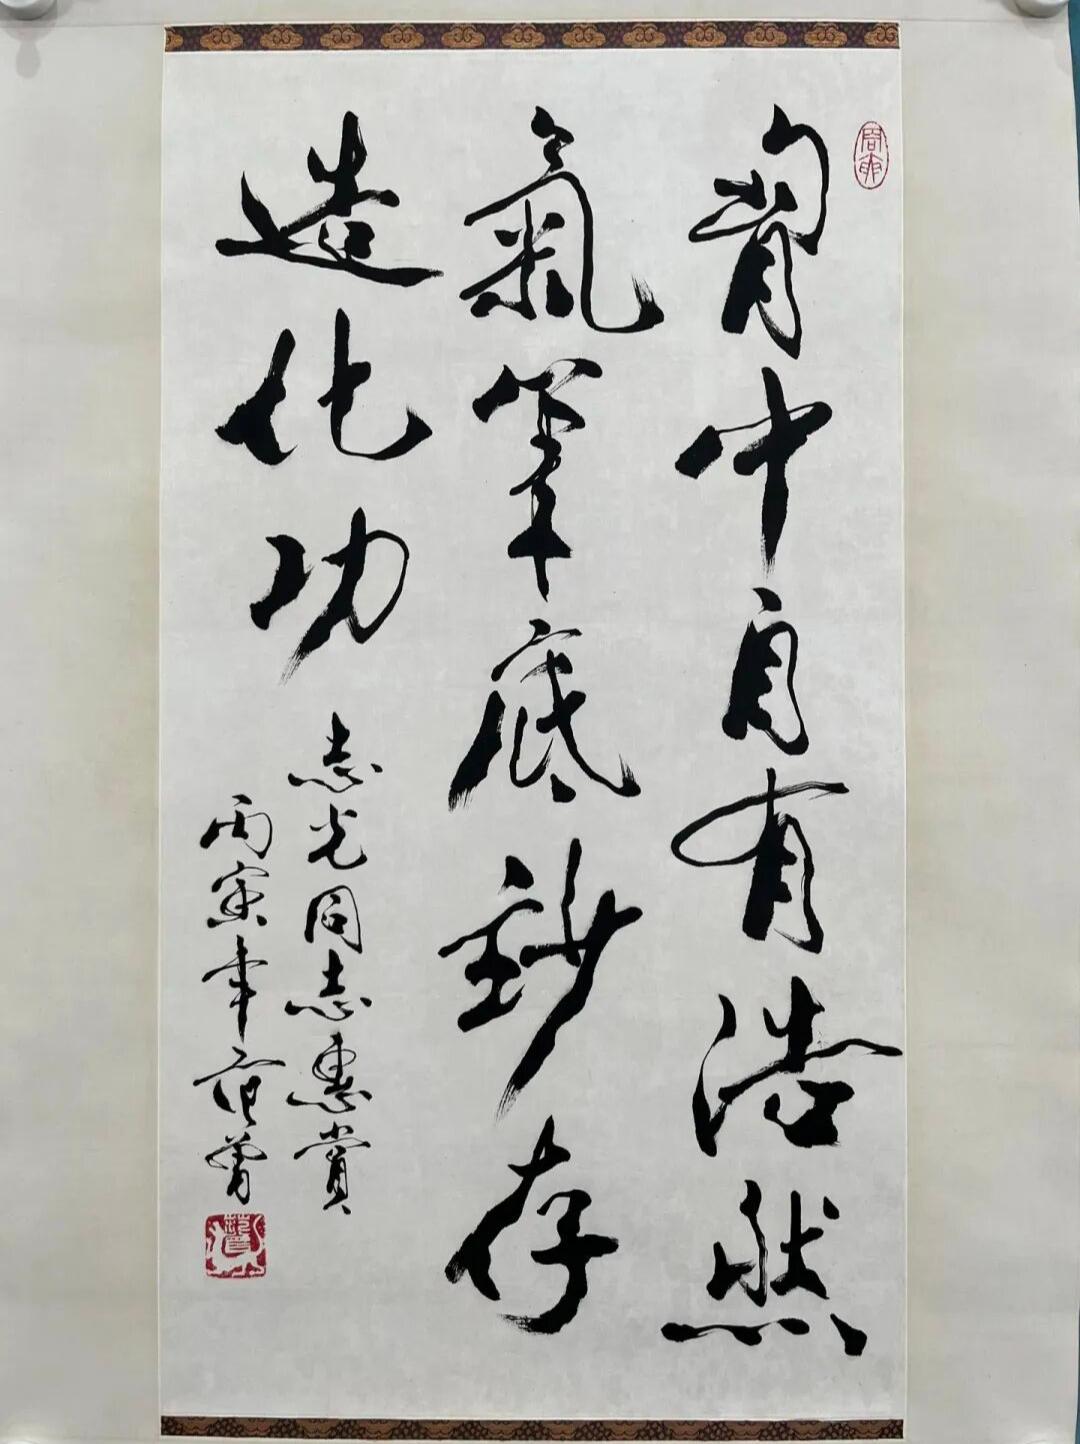 胷中自有浩然
氣筆底紗存
造化功
志光同志惠賞
丙寅年范曾